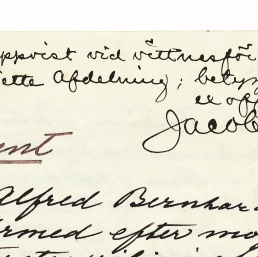 uppvist vid vittnesför
ette Afdelning; betyg
Jacob
ent
Alfred Bernhar
ermed efter mo